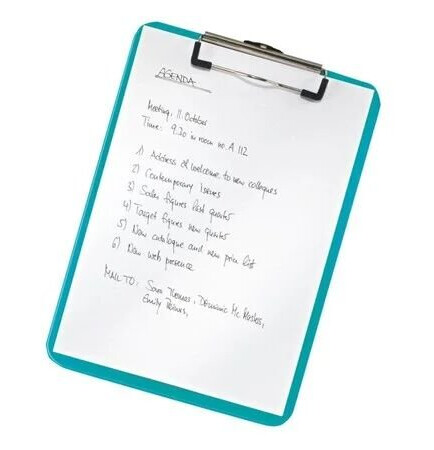 AGENDA
Meeting, 11. October
Time: 9.30 in room no. A 112
1) Address & welcome to new collegues
2) Contemporary issues
3) Sales figures last quarter
4) Target figures new quarter
5) New catalogue and new price list
6) New web presence
MAIL TO: Sara Thomas, Dominic Mc
Emily